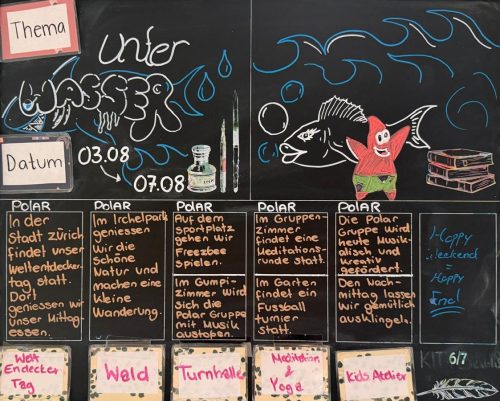 Thema
Unter
WASSER
Datum
03.08
07.08
POLAR
In der
Stadt Zürich
findet unser
Weltentdecker
tag statt.
Dort
geniessen wir
unser Mittag-
essen.
POLAR
Im Irchelpark
geniessen
wir die
Schöne
Natur und
machen eine
kleine
Wanderung.
POLAR
Auf dem
Sportplatz
gehen wir
Freezbee
spielen.
Im Gumpi-
zimmer wird
sich die
Polar Gruppe
mit Musik
austoben.
POLAR
Im Gruppen-
zimmer
findet eine
Meditations-
runde statt.
Im Garten
findet ein
Fussball
turnier
statt.
POLAR
Die Polar
Gruppe wird
heute Musik-
alisch und
kreativ
gefördert.
Den Nach-
mittag lassen
wir gemütlich
ausklingen.
Happy
weekend
-
Happy
End!
Welt
Endecker
Tag
Wald
Turnhalle
Meditation
&
Yoga
Kids Atelier
KIT 6/7